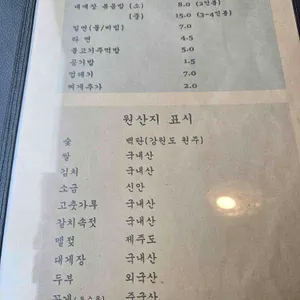 대게장 볶음밥 (소) 8.0 (2인용)
(중) 15.0 (3-4인용)
밀면(물/비빔) 7.0
라 면 4.5
불고기주먹밥 5.0
공기밥 1.5
찌개추가 2.0
원산지 표시
숯 백탄(강원도 원주)
쌀 국내산
김치 국내산
소금 신안
고춧가루 국내산
갈치속젓 국내산
멜젓 제주도
대게장 국내산
두부 외국산
꽃게 중국산